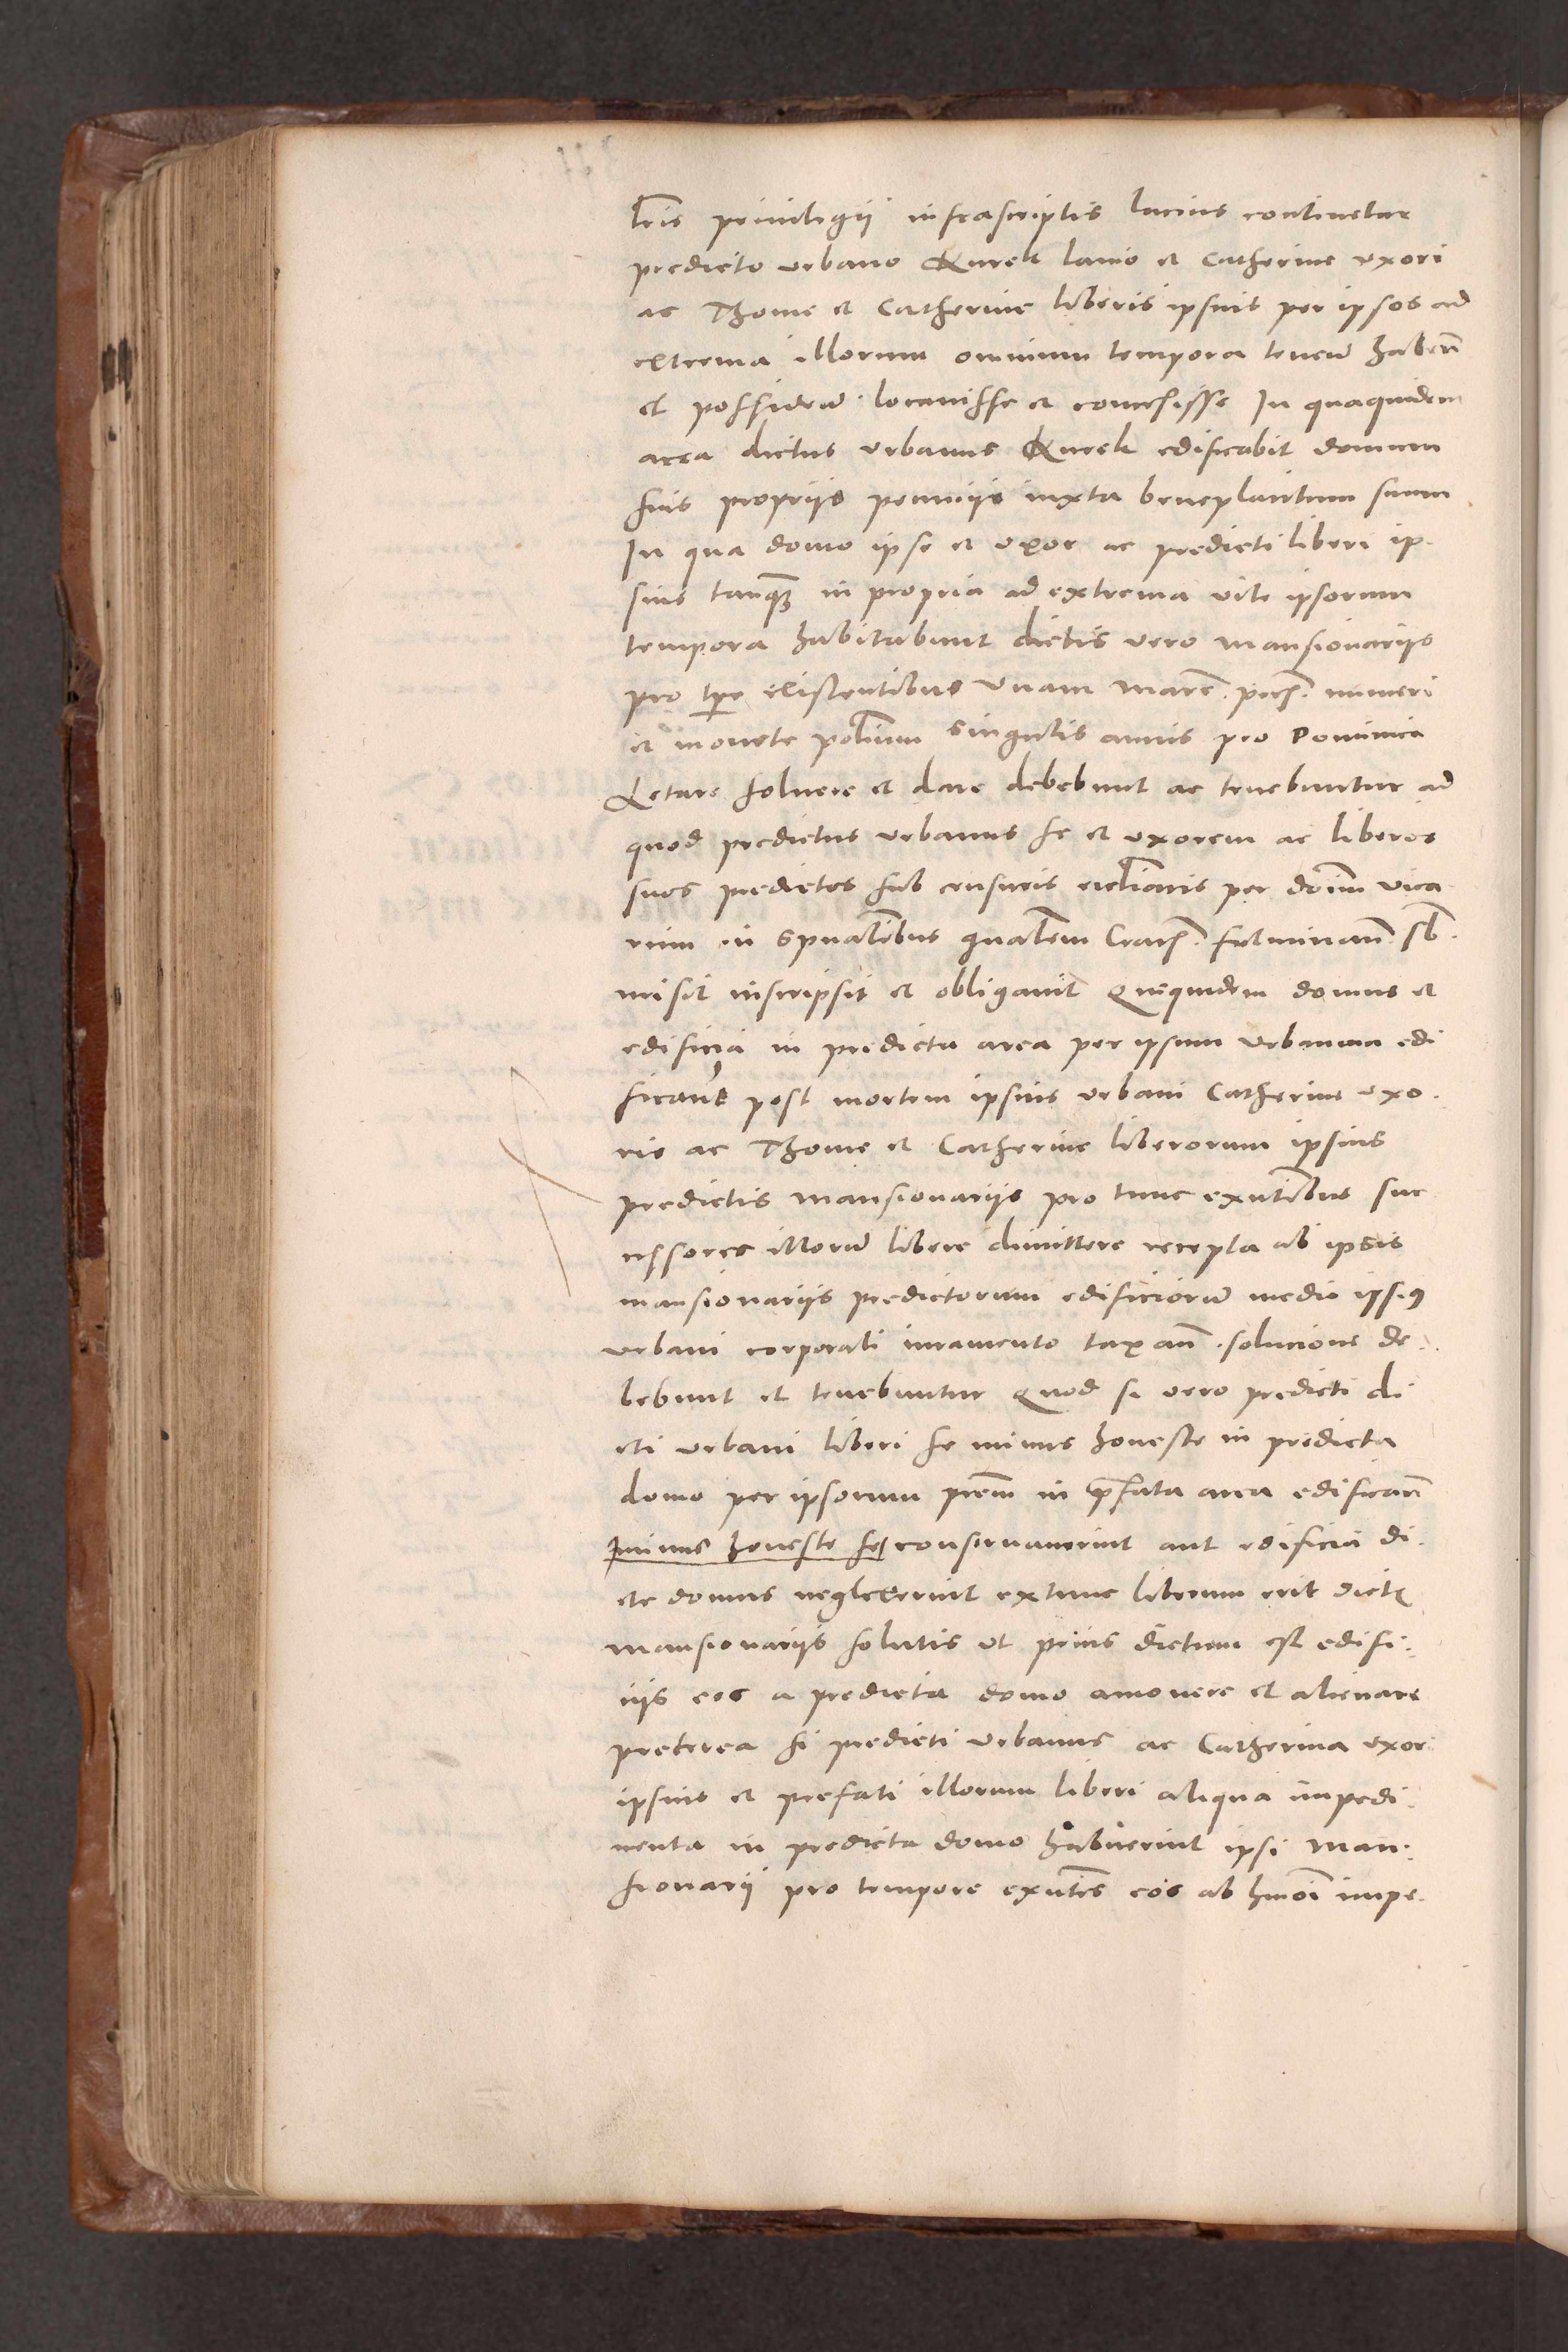 lris privilegii infrascriptis lacius continetur
predicto urbano Kurek lanio et Catherine uxori
ac Thome et Catherine liberis ipsius per ipsos ad
extrema illorum omnium tempora tenen haben
et possiden locavisse et concessisse In quaquidem
area dictus urbanus Kurek edificabit domum
suis propriis pecuniis iuxta beneplacitum suum
In qua domo ipse et uxor ac predicti liberi ip
sius tanq in propria ad extrema vite ipsorum
tempora habitabunt dictis vero mansionariis
pro tpe existentibus unam marc. pec. numeri
et monete polium singulis annis pro Dominica
Letare solvere et dare debebunt ac tenebuntur ad
quod predictus urbanus se et uxorem ac liberos
suos predictos sub censuris ecclïacis per dnm vica
rium in spualibus gnalem Crac. fulminan sb.
misit inscripsit et obligavit Quequidem domus et
edificia in predicta area per ipsum urbanum edi
ficand post mortem ipsius urbani Catherine uxo.
ris ac Thome et Catherine liberorum ipsius
predictis mansionariis pro tunc exntibus suc
cessores illorum libere dimittere recepta ab ipsis
mansionariis predictorum edificiorum medio ipsius
urbani corporali iuramento taxan. solucione de.
bebunt et tenebuntur Quod si vero predicti di
cti urbani liberi se minus honeste in predicta
domo per ipsorum prem in prefata area edifican
minus honeste se conservaverint aut edificia di.
cte domus neglexerint extunc liberum erit dictis
mansionariis solutis ut prius dictum est edifi.
ciis eos a predicta domo amovere et alienare
preterea si predicti urbanus ac Catherina uxor
ipsius et prefati illorum liberi aliqua impedi.
menta in predicta domo habuerint ipsi man.
sionarii pro tempore exntes eos ab hmoi impe.